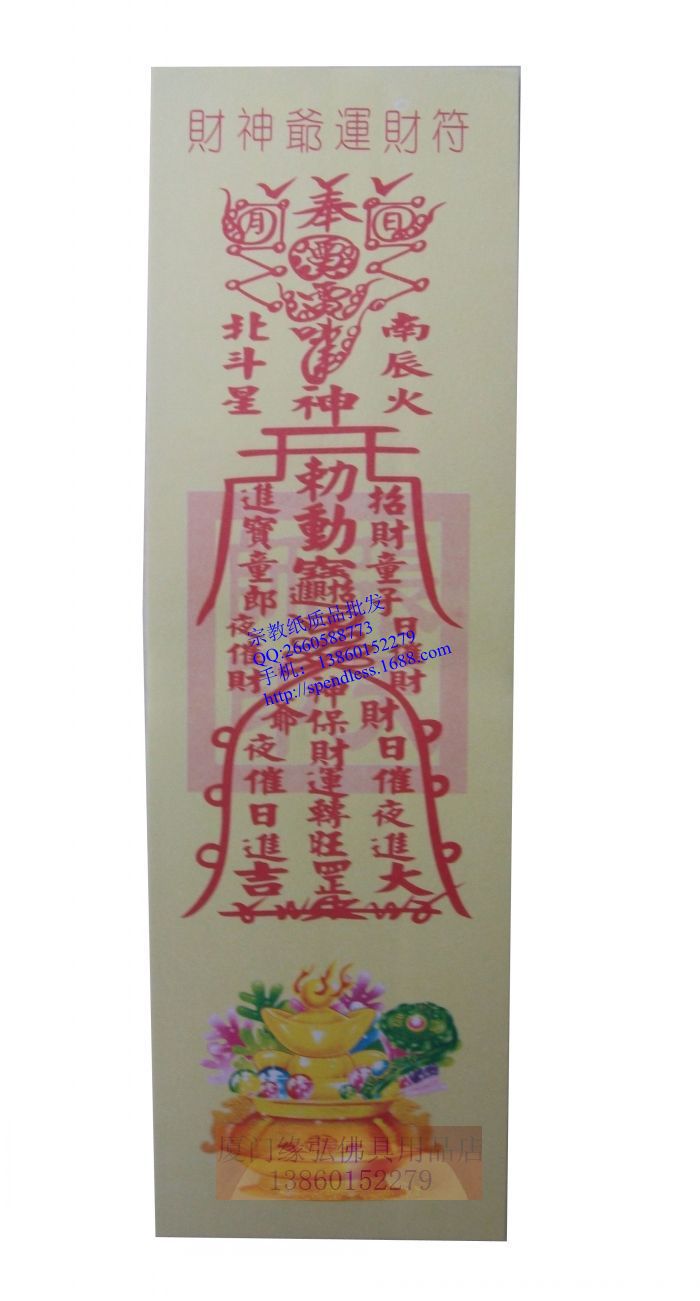 財神爺運財符
奉
月
日
北斗星
南辰火
神
勅動
招財童子日催財
進寶童郎夜催財
神保財運轉旺罡
財日催夜進大
爺夜催日進吉
宗教纸质品批发
QQ:2660588773
手机：13860152279
http://spendless.1688.com
厦门缘弘佛具用品店
13860152279